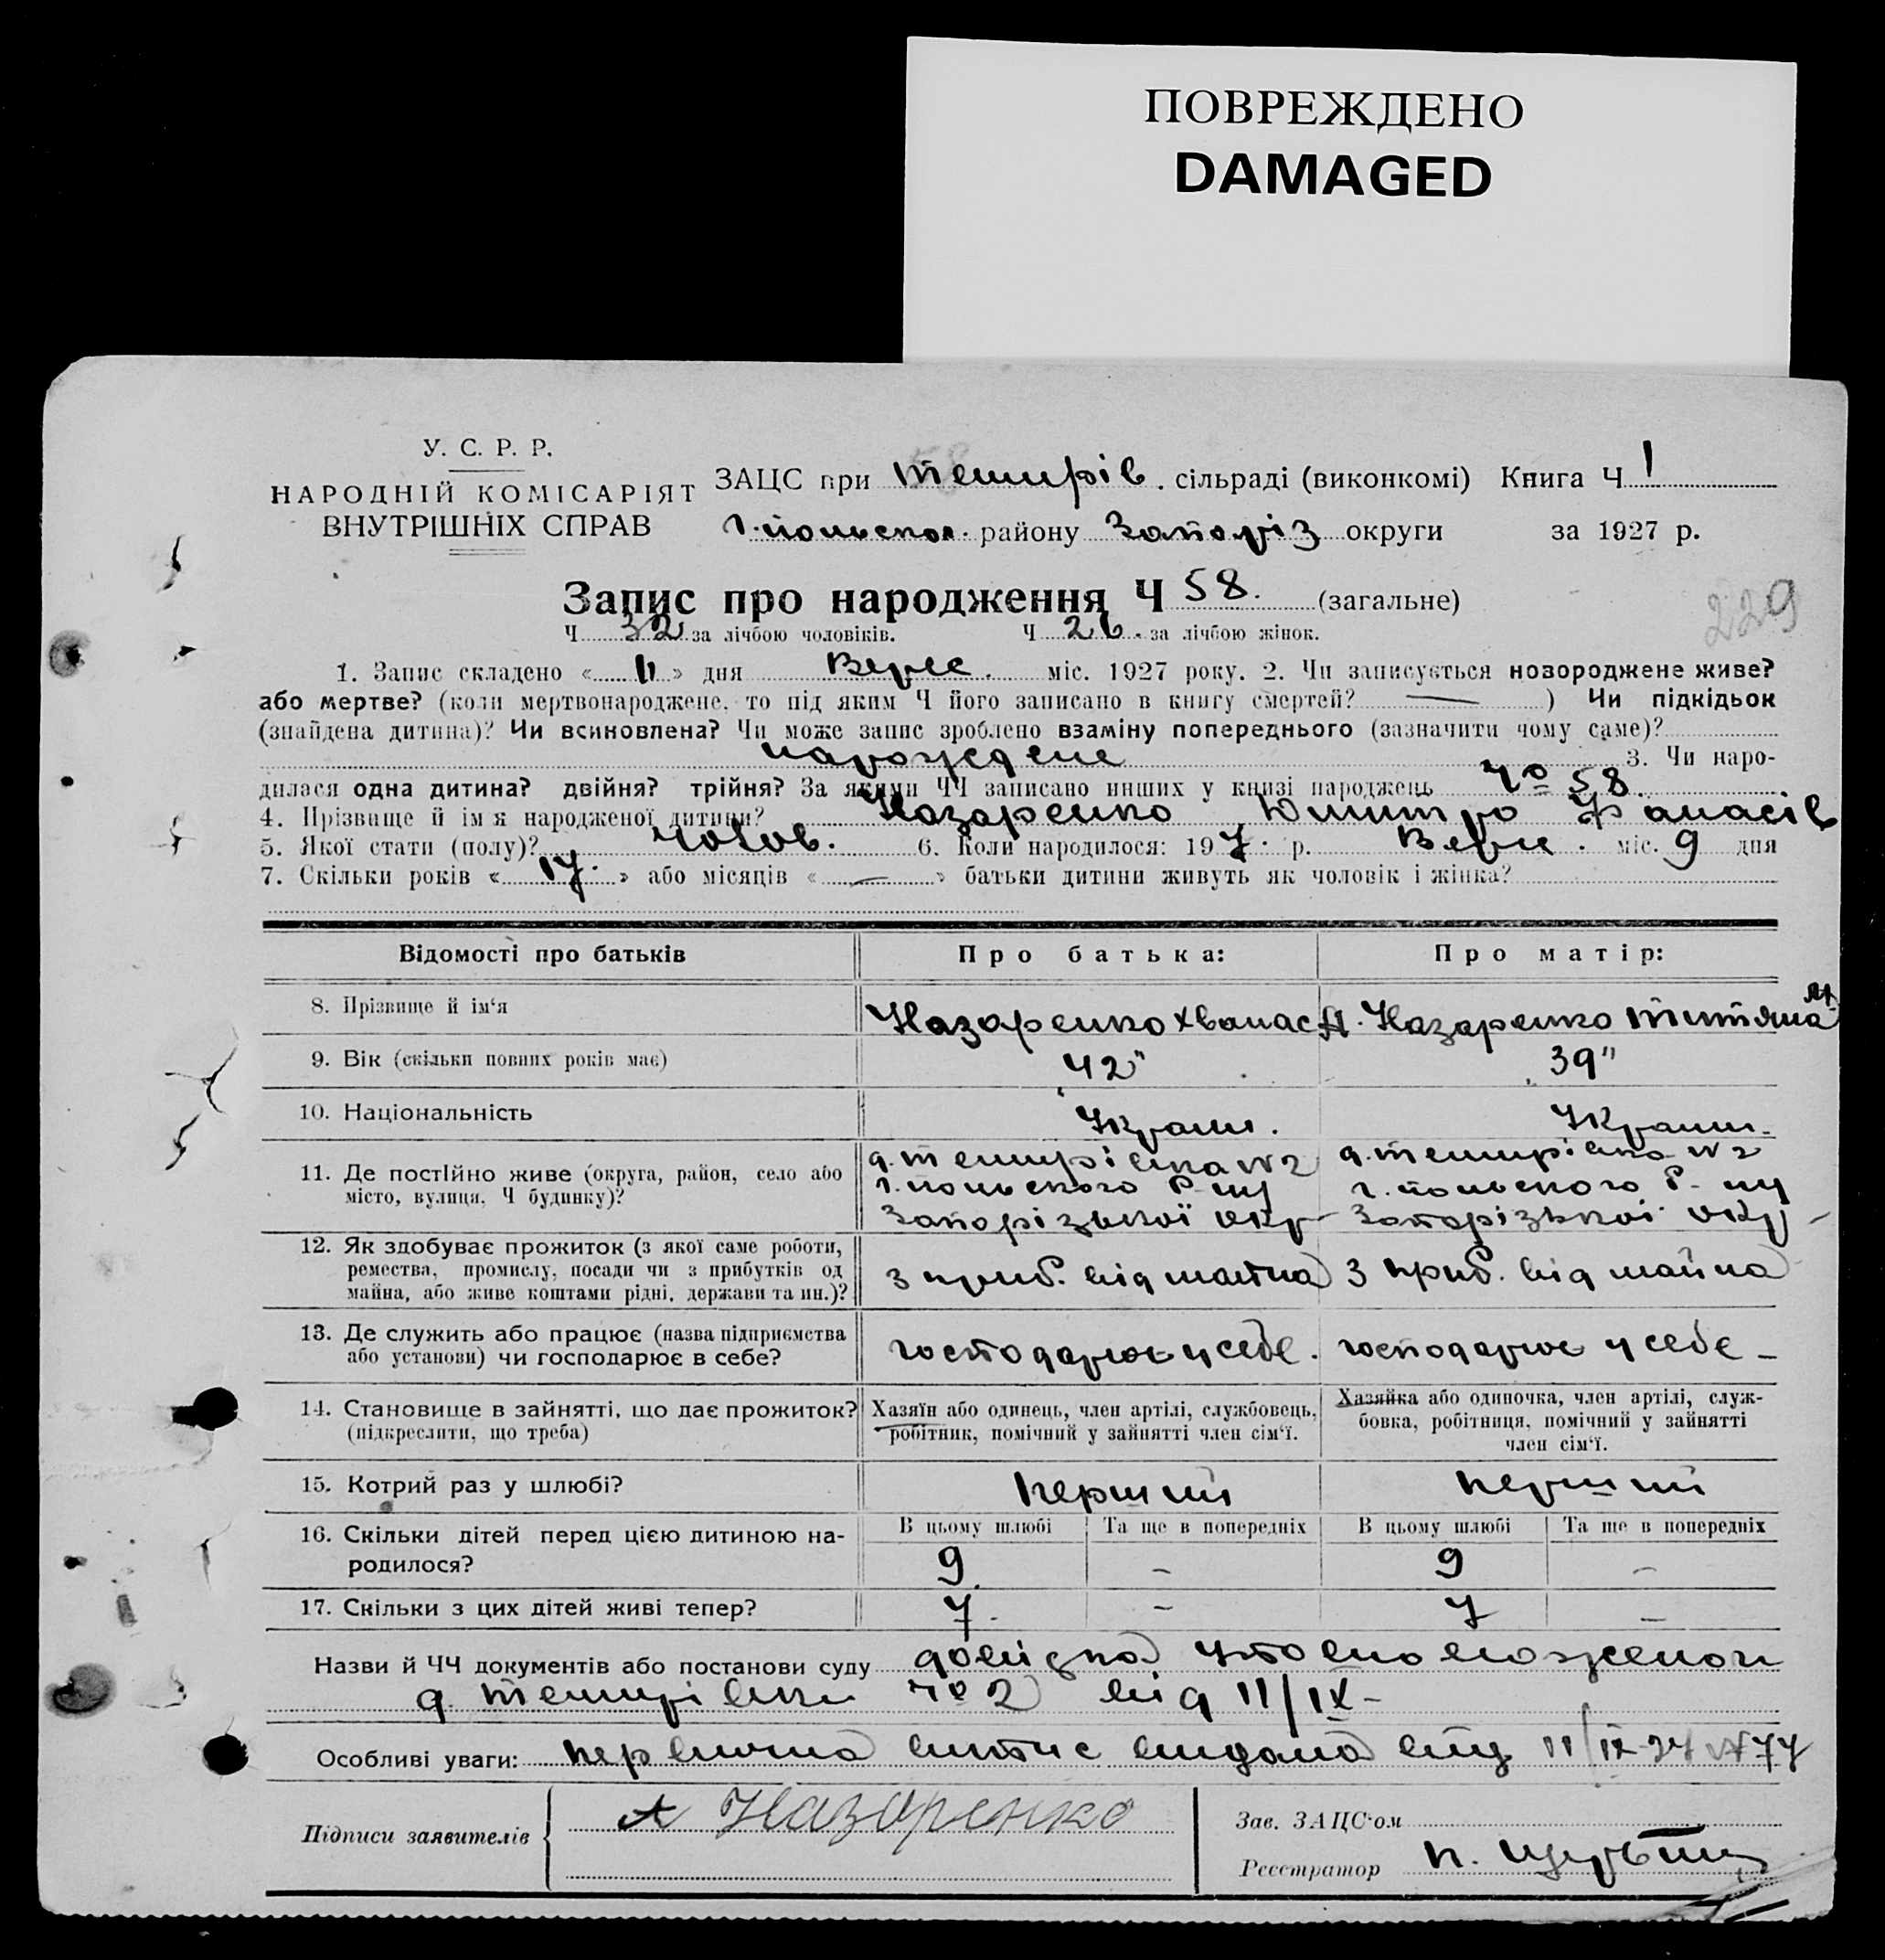 ПОВРЕЖДЕНО
DAMAGED
У. С. Р. Р.
НАРОДНІЙ КОМІСАРІЯТ
ВНУТРІШНІХ СПРАВ
ЗАЦС при Темирів. сільраді (виконкомі) Книга Ч 1
Г.польськ. району Запоріз округи за 1927 р.
Запис про народження Ч 58. (загальне)
229
Ч 32 за лічбою чоловіків. Ч 26. за лічбою жінок.
1. Запис складено « 11 » дня Верес. міс. 1927 року. 2. Чи записується новороджене живе?
або мертве? (коли мертвонароджене, то під яким Ч його записано в книгу смертей? — ) Чи підкідьок
(знайдена дитина)? Чи всиновлена? Чи може запис зроблено взаміну попереднього (зазначити чому саме)?
народжене 3. Чи наро-
дилася одна дитина? двійня? трійня? За якими ЧЧ записано инших у книзі народжень Чо 58.
4. Прізвище й ім'я народженої дитини? Назаренко Юмитро Фанасів
5. Якої стати (полу)? Чолов. 6. Коли народилося: 1927. р. Верес. міс. 9 дня
7. Скільки років « 17. » або місяців « — » батьки дитини живуть як чоловік і жінка?
Відомості про батьків Про батька: Про матір:
8. Прізвище й ім'я Назаренко Хванас А. Назаренко Титяна М
9. Вік (скільки повних років має) 42" 39"
10. Національність Украин. Украин.
11. Де постійно живе (округа, район, село або місто, вулиця, Ч будинку)?
д. Темирівка N 2 д. Темирівка N 2
г. польского Р-ну г. польского Р-ну
Запорізької окр Запорізької окр
12. Як здобуває прожиток (з якої саме роботи,
ремества, промислу, посади чи з прибутків од
майна, або живе коштами рідні, держави та ин.)?
з приб. від майна з приб. від майна
13. Де служить або працює (назва підприємства
або установи) чи господарює в себе?
господарює у себе. господарює у себе –
14. Становище в зайнятті, що дає прожиток?
(підкреслити, що треба)
Хазяїн або одинець, член артілі, службовець,
робітник, помічний у зайнятті член сім'ї.
Хазяйка або одиночка, член артілі, служ-
бовка, робітниця, помічний у зайнятті
член сім'ї.
15. Котрий раз у шлюбі? перший перший
16. Скільки дітей перед цією дитиною на-
родилося?
В цьому шлюбі Та ще в попередніх В цьому шлюбі Та ще в попередніх
9 – 9 –
17. Скільки з цих дітей живі тепер? 7. – 7 –
Назви й ЧЧ документів або постанови суду довідка уповноваженог
д. Темирівки Чо 2 від 11/IX –
Особливі уваги: первична випис видана від 11/IX-27 N 77
Підписи заявителів А Назаренко
Зав. ЗАЦС'ом
Реєстратор П.